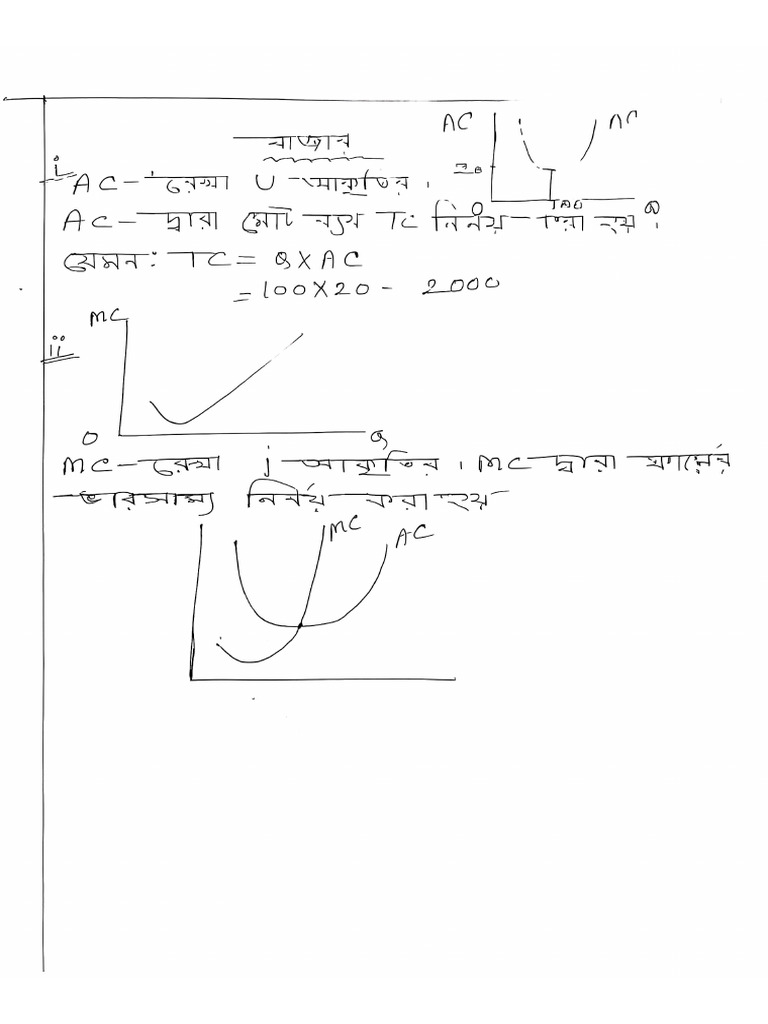 বাজার
AC AC
i AC-রেখা U-আকৃতির।
20
O 100 Q
AC-দ্বারা মোট ব্যয় TC নির্নয় করা হয়।
যেমন: TC = Q X AC
= 100 X 20 - 2000
MC
ii
O Q
MC-রেখা j-আকৃতির। MC দ্বারা ফার্মের
ভারসাম্য নির্নয় করা হয়
MC AC